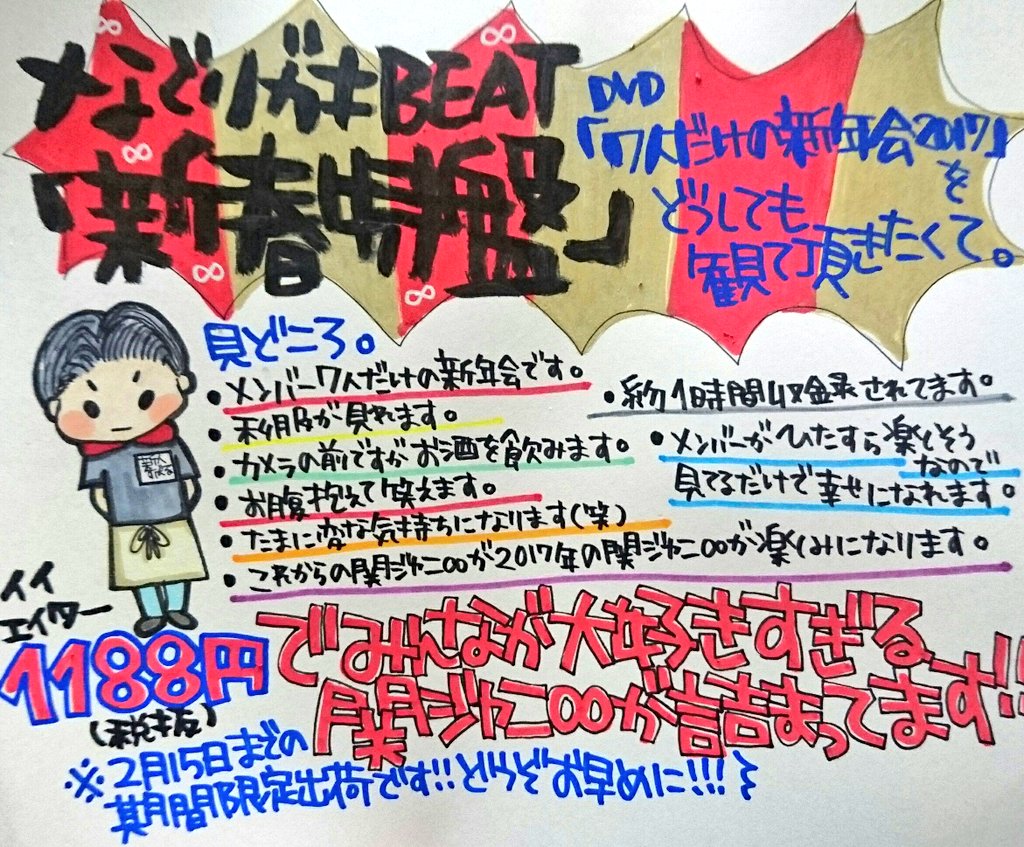 なぐりガキBEAT
「新春特盤」
DVD
「7人だけの新年会2017」を
どうしても
観て頂きたくて。
見どころ。
・メンバー7人だけの新年会です。
・利尻Pが見れます。
・カメラの前ですがお酒を飲みます。
・お腹抱えて笑えます。
・たまに変な気持ちになります(笑)
・これからの関ジャニ∞が2017年の関ジャニ∞が楽しみになります。
・約1時間収録されてます。
・メンバーがひたすら楽しそう
なので
見てるだけで幸せになれます。
イイ
エイター
1188円
(税抜)
でみんなが大好きすぎる
関ジャニ∞が詰まってます!!
※2月15日までの
期間限定出荷です!!どうぞお早めに!!!